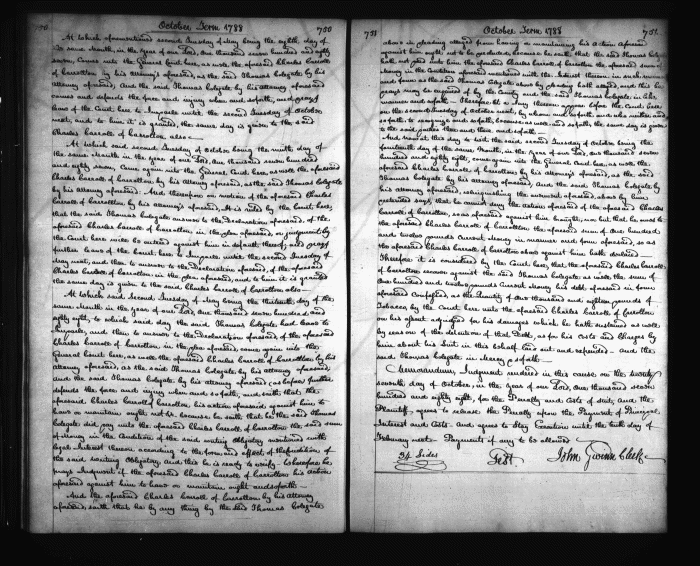 October Term 1788 750
At which aforementioned second Tuesday of May being the eighth day of
the same Month, in the year of our Lord, One thousand seven hundred and eighty
seven, Comes into the General Court here, as well the aforesaid Charles Carroll
of Carrollton by his Attorney's aforesaid, as the said Thomas Colegate by his
attorney aforesaid, And the said Thomas Colegate by his attorney aforesaid
comes and defends the force and injury when and soforth, and prays
leave of the Court here to Imparle until the second Tuesday of October
next, and to him it is granted, the same day is given to the said
Charles Carroll of Carrollton also —
At which said second Tuesday of October being the ninth day of
the same Month, in the year of our Lord, One thousand seven hundred
and eighty seven, Come again into the General Court here, as well the aforesaid
Charles Carroll of Carrollton, by his Attorney's aforesaid, as the said Thomas Colegate
by his attorney aforesaid. And thereupon on motion of the aforesaid Charles
Carroll of Carrollton by his Attorney's aforesaid, It is ruled by the Court here,
that the said Thomas Colegate answer to the Declaration aforesaid, of the
aforesaid Charles Carroll of Carrollton, in the plea aforesaid, or judgment by
the Court here will be entered against him in default thereof, and prays
further leave of the Court here to Imparle until the second Tuesday of
May next, and then to answer to the Declaration aforesaid, of the aforesaid
Charles Carroll of Carrollton in the plea aforesaid, and to him it is granted
the same day is given to the said Charles Carroll of Carrollton also —
At which said Second Tuesday of May being the thirteenth day of the
same Month in the year of our Lord, One thousand seven hundred and
eighty eight, to which said day the said Thomas Colegate had leave to
Imparle, and then to answer to the Declaration aforesaid, of the aforesaid
Charles Carroll of Carrollton, in the plea aforesaid, come again into the
General Court here, as well the aforesaid Charles Carroll of Carrollton by his
attorney aforesaid, as the said Thomas Colegate by his attorney aforesaid;
And the said Thomas Colegate by his attorney aforesaid (as before) further
defends the force and injury when and soforth, and saith that the
aforesaid Charles Carroll of Carrollton, his action aforesaid against him to
have or maintain ought not &c because he saith that he the said Thomas
Colegate did pay unto the aforesaid Charles Carroll of Carrollton the said sum
of Money in the Condition of the said writing Obligatory mentioned with
legal Interest thereon according to the form and effect of the Condition of
the said writing Obligatory, and this he is ready to verify. Wherefore he
prays Judgment if the aforesaid Charles Carroll of Carrollton his Action
aforesaid against him to have or maintain ought andsoforth —
And the aforesaid Charles Carroll of Carrollton by his Attorney
aforesaid, saith that he by any thing by the said Thomas Colegate
751 October Term 1788 751
above in pleading alledged from having or maintaining his Action aforesaid
against him ought not to be precluded, because he saith that the said Thomas Colegate
hath not paid unto him the aforesaid Charles Carroll of Carrollton the aforesaid sum of
Money in the Condition aforesaid mentioned with the Interest thereon in such manner
and form as the said Thomas Colegate above by pleading hath alledged, and this he
prays may be enquired of by the County and the said Thomas Colegate in like
manner and soforth — Therefore
on the second Tuesday of October next, by whom and soforth, and who neither and
soforth to recognize and soforth, because as well and soforth, the same day is given
to the said parties there and then and soforth —
And now at this day to wit the said second Tuesday of October being the
fourteenth day of the same Month, in the year of our Lord, One thousand seven
hundred and eighty eight, come again into the General Court here, as well the
aforesaid Charles Carroll of Carrollton by his attorney's aforesaid, as the said
Thomas Colegate by his attorney aforesaid, And the said Thomas Colegate by
his attorney aforesaid, relinquishing the averment aforesaid, above by him
pleaded says, that he cannot deny the action aforesaid of the aforesaid Charles
Carroll of Carrollton, so as aforesaid against him brought, nor but he owes to
the aforesaid Charles Carroll of Carrollton the aforesaid sum of One hundred
and twelve pounds Current Money in manner and form aforesaid, so as
the aforesaid Charles Carroll of Carrollton above against him hath declared —
Therefore it is considered by the Court here, that the aforesaid Charles Carroll
of Carrollton recover against the said Thomas Colegate as well the sum of
One hundred and twelve pounds Current Money his debt aforesaid in form
aforesaid Confessed, as the Quantity of two thousand and eighteen pounds of
Tobacco by the Court here unto the aforesaid Charles Carroll of Carrollton
on his assent adjudged for his damages which he hath sustained as well
by reason of the detention of that Debt, as for his Costs and Charges by
him about his Suit in this behalf laid out and expended — And the
said Thomas Colegate in Mercy &soforth —
Memorandum, Judgment rendered in this cause on the twenty
seventh day of October, in the year of our Lord, One thousand seven
hundred and eighty eight, for the Penalty and Costs of suit, and the
Plaintiff agrees to release the Penalty upon the Payment of Principal
Interest and Costs — and agrees to Stay Execution until the tenth day of
February next — Payments if any to be allowed
34 Sides Test. John Gwinn Clerk